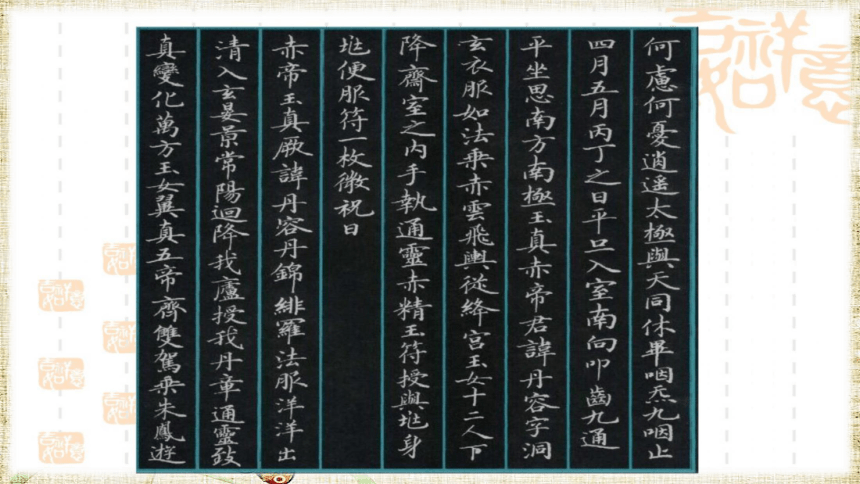 何慮何憂逍遥太極與天同休畢咽炁九咽止
四月五月丙丁之日平旦入室南向叩齒九通
平坐思南方南極玉真赤帝君諱丹容字洞
玄衣服如法乗赤雲飛輿從絳宮玉女十二人下
降齋室之内手執通靈赤精玉符授與兆身
兆便服符一枚微祝曰
赤帝玉真厥諱丹容丹錦緋羅法服洋洋出
清入玄晏景常陽迴降我廬授我丹章通靈致
真變化萬方玉女翼真五帝齊雙駕乗朱鳳遊
吉祥如意
吉祥如意
吉祥如意
吉祥如意
吉祥如意
吉祥如意
吉祥如意
吉祥如意